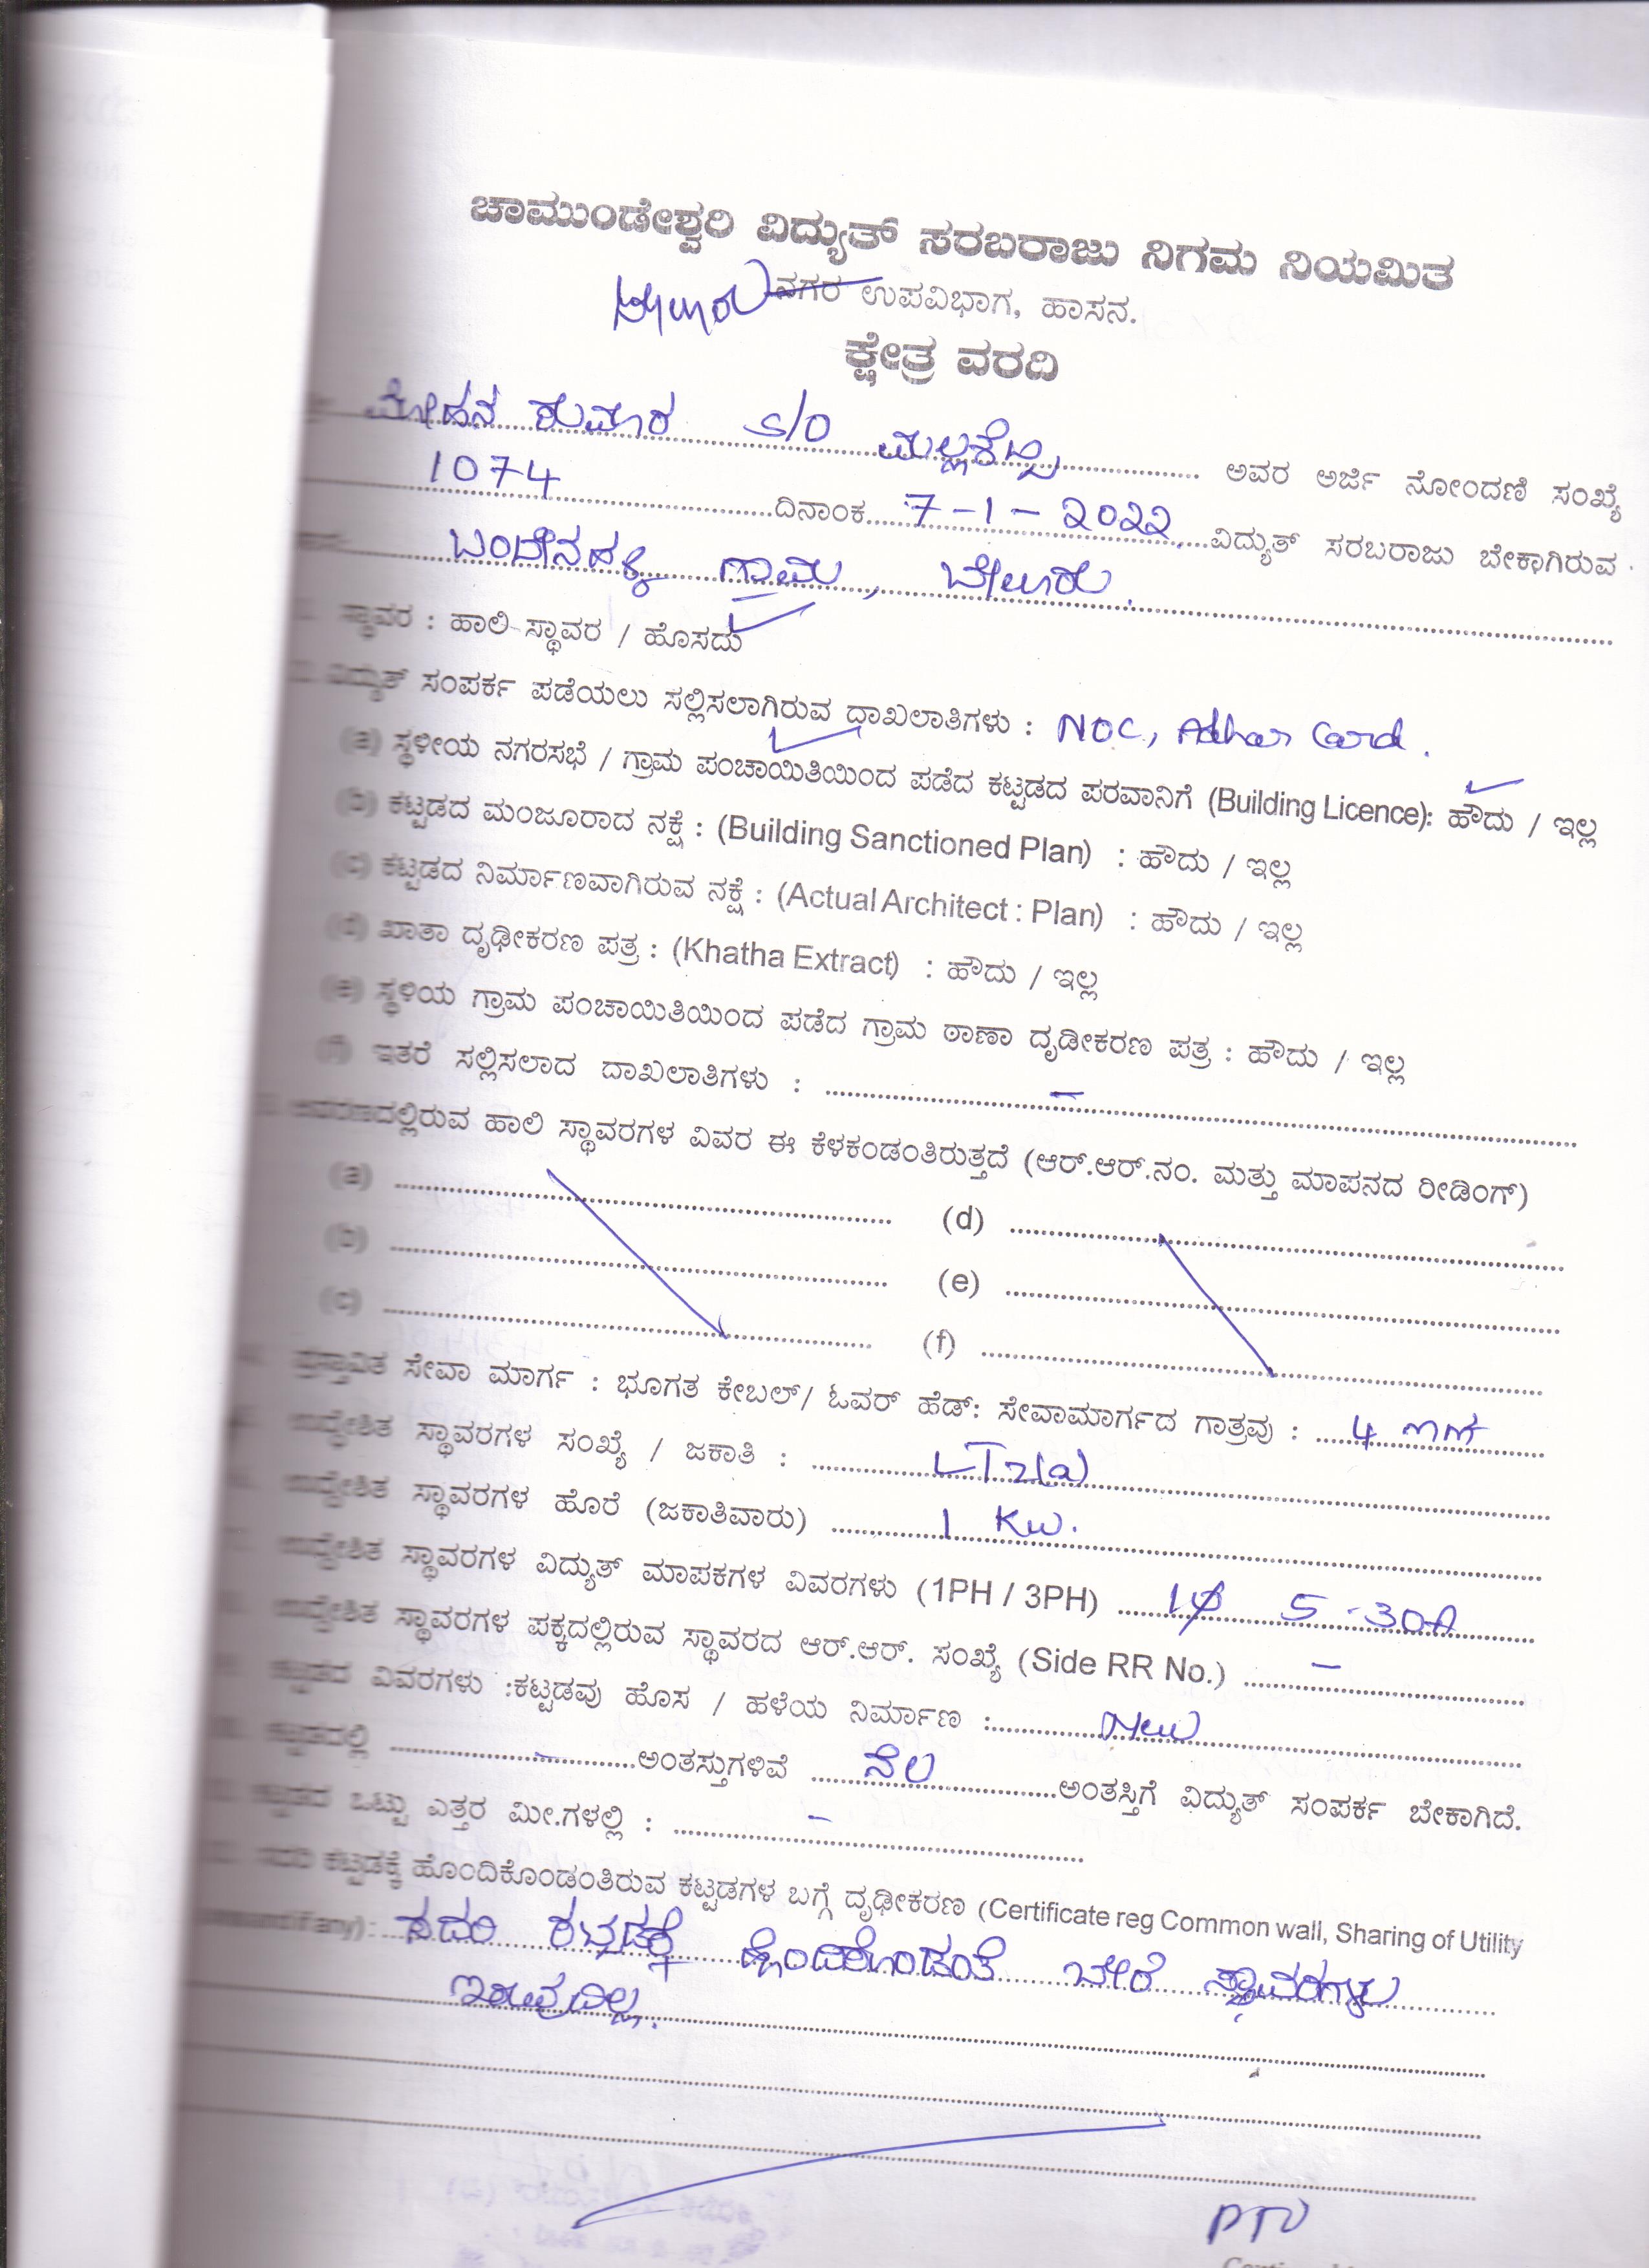 ಚಾಮುಂಡೇಶ್ವರಿ ವಿದ್ಯುತ್ ಸರಬರಾಜು ನಿಗಮ ನಿಯಮಿತ
ನಗರ ಉಪವಿಭಾಗ, ಹಾಸನ.
ಕ್ಷೇತ್ರ ವರದಿ
ಮೋಹನ ಕುಮಾರ S/O ಅವರ ಅರ್ಜಿ ನೋಂದಣಿ ಸಂಖ್ಯೆ
1074 ದಿನಾಂಕ 7-1-2022 ವಿದ್ಯುತ್ ಸರಬರಾಜು ಬೇಕಾಗಿರುವ
ಗ್ರಾಮ, ಬೇಲೂರು.
ಸ್ಥಾವರ : ಹಾಲಿ ಸ್ಥಾವರ / ಹೊಸದು
ವಿದ್ಯುತ್ ಸಂಪರ್ಕ ಪಡೆಯಲು ಸಲ್ಲಿಸಲಾಗಿರುವ ಧಾಖಲಾತಿಗಳು : NOC, Adhar Card.
(a) ಸ್ಥಳೀಯ ನಗರಸಭೆ / ಗ್ರಾಮ ಪಂಚಾಯಿತಿಯಿಂದ ಪಡೆದ ಕಟ್ಟಡದ ಪರವಾನಿಗೆ (Building Licence): ಹೌದು / ಇಲ್ಲ
(b) ಕಟ್ಟಡದ ಮಂಜೂರಾದ ನಕ್ಷೆ : (Building Sanctioned Plan) : ಹೌದು / ಇಲ್ಲ
(c) ಕಟ್ಟಡದ ನಿರ್ಮಾಣವಾಗಿರುವ ನಕ್ಷೆ : (Actual Architect : Plan) : ಹೌದು / ಇಲ್ಲ
(d) ಖಾತಾ ದೃಢೀಕರಣ ಪತ್ರ : (Khatha Extract) : ಹೌದು / ಇಲ್ಲ
(e) ಸ್ಥಳಿಯ ಗ್ರಾಮ ಪಂಚಾಯಿತಿಯಿಂದ ಪಡೆದ ಗ್ರಾಮ ಠಾಣಾ ದೃಡೀಕರಣ ಪತ್ರ : ಹೌದು / ಇಲ್ಲ
(f) ಇತರೆ ಸಲ್ಲಿಸಲಾದ ದಾಖಲಾತಿಗಳು : –
ಆವರಣದಲ್ಲಿರುವ ಹಾಲಿ ಸ್ಥಾವರಗಳ ವಿವರ ಈ ಕೆಳಕಂಡಂತಿರುತ್ತದೆ (ಆರ್.ಆರ್.ನಂ. ಮತ್ತು ಮಾಪನದ ರೀಡಿಂಗ್)
(a) (d)
(b) (e)
(c) (f)
ಪ್ರಸ್ತಾವಿತ ಸೇವಾ ಮಾರ್ಗ : ಭೂಗತ ಕೇಬಲ್/ ಓವರ್ ಹೆಡ್: ಸೇವಾಮಾರ್ಗದ ಗಾತ್ರವು : 4
ಉದ್ದೇಶಿತ ಸ್ಥಾವರಗಳ ಸಂಖ್ಯೆ / ಜಕಾತಿ : LT2(a)
ಉದ್ದೇಶಿತ ಸ್ಥಾವರಗಳ ಹೊರೆ (ಜಕಾತಿವಾರು) 1 KW.
ಉದ್ದೇಶಿತ ಸ್ಥಾವರಗಳ ವಿದ್ಯುತ್ ಮಾಪಕಗಳ ವಿವರಗಳು (1PH / 3PH) 1φ 5-30A
ಉದ್ದೇಶಿತ ಸ್ಥಾವರಗಳ ಪಕ್ಕದಲ್ಲಿರುವ ಸ್ಥಾವರದ ಆರ್.ಆರ್. ಸಂಖ್ಯೆ (Side RR No.) –
ಕಟ್ಟಡದ ವಿವರಗಳು :ಕಟ್ಟಡವು ಹೊಸ / ಹಳೆಯ ನಿರ್ಮಾಣ : New
ಕಟ್ಟಡದಲ್ಲಿ – ಅಂತಸ್ತುಗಳಿವೆ ನೆಲ ಅಂತಸ್ತಿಗೆ ವಿದ್ಯುತ್ ಸಂಪರ್ಕ ಬೇಕಾಗಿದೆ.
ಕಟ್ಟಡದ ಒಟ್ಟು ಎತ್ತರ ಮೀ.ಗಳಲ್ಲಿ : –
ಸದರಿ ಕಟ್ಟಡಕ್ಕೆ ಹೊಂದಿಕೊಂಡಂತಿರುವ ಕಟ್ಟಡಗಳ ಬಗ್ಗೆ ದೃಢೀಕರಣ (Certificate reg Common wall, Sharing of Utility
if any): ಸದರಿ ಕಟ್ಟಡಕ್ಕೆ ಹೊಂದಿಕೊಂಡಂತೆ ಬೇರೆ ಸ್ಥಾವರಗಳು
ಇರುವುದಿಲ್ಲ.
PTO